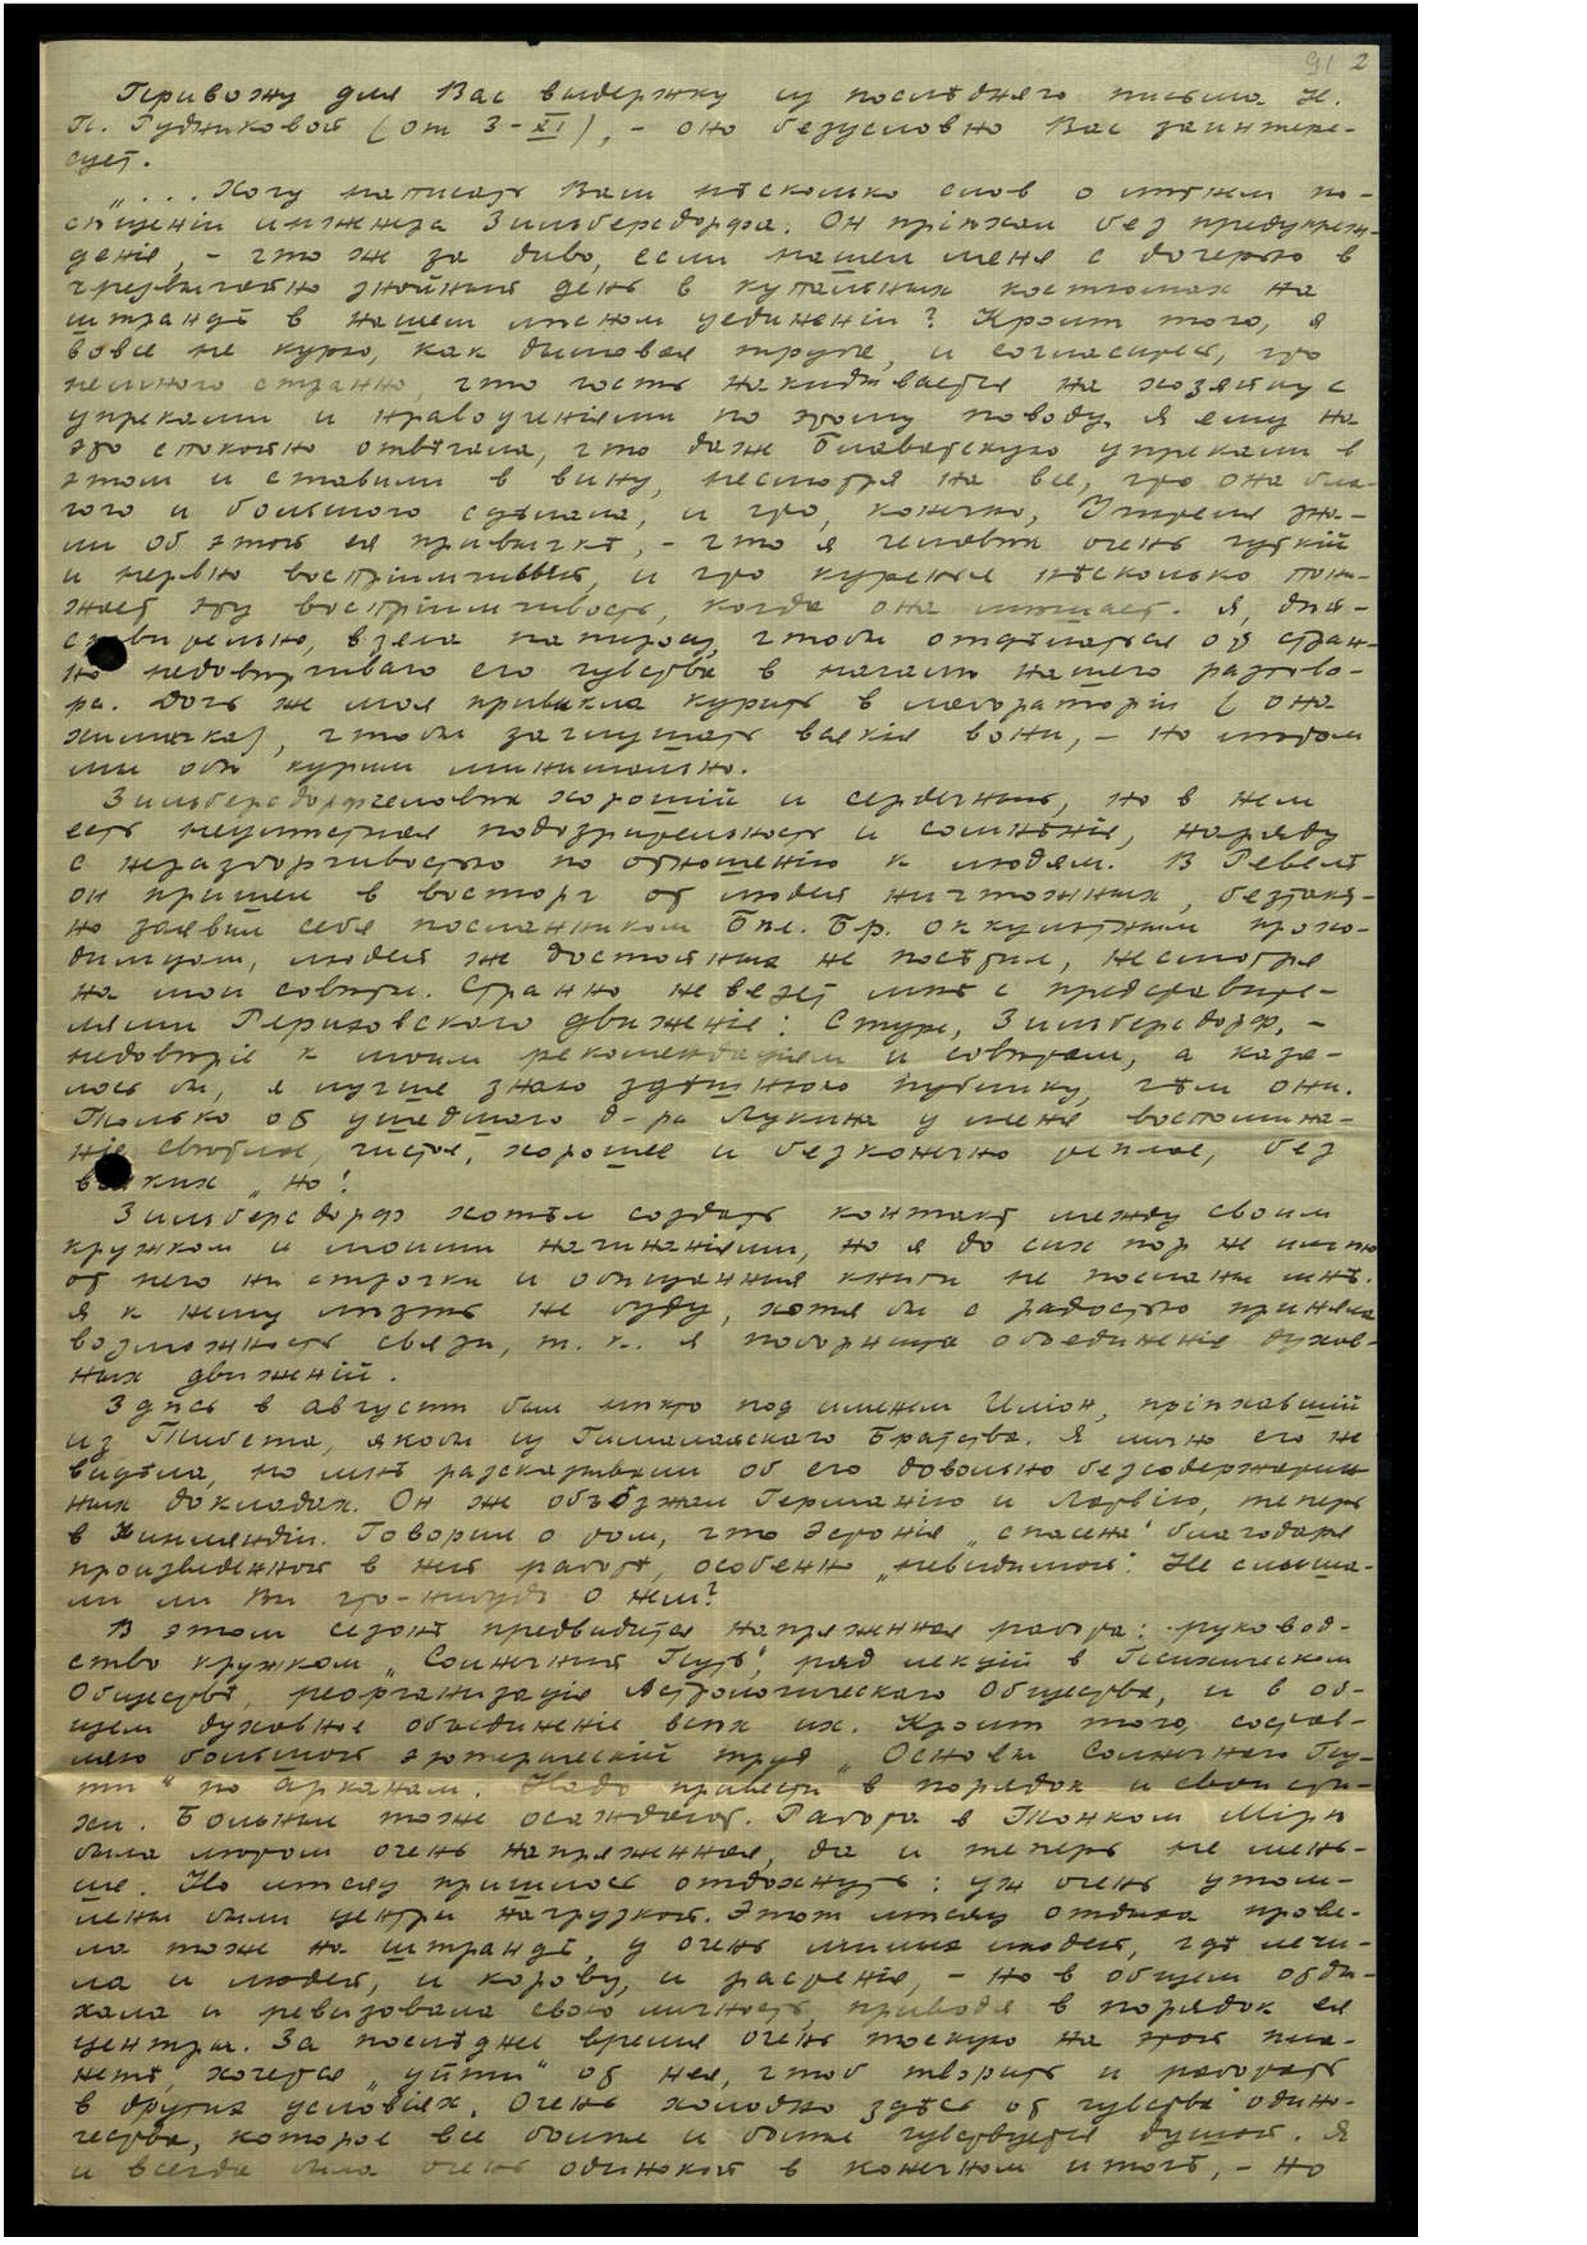 91 2
Привожу для Вас выдержку из послѣдняго письма Н.
П. Рудниковой (от 3-XI), - оно безусловно Вас заинтере-
сует.
„... Хочу написать Вам нѣсколько слов о лѣтнем по-
сѣщеніи инженера Зильберсдорфа. Он пріѣхал без предупреж-
денія, - что ж за диво, если нашел меня с дочерью в
чрезвычайно знойный день в купальных костюмах на
штрандѣ в нашем лѣсном уединеніи? Кромѣ того, я
вовсе не курю, как дымовая труба, и согласитесь, что
немного странно, что гость накидывается на хозяйку с
упреками и нравоученіями по этому поводу. Я ему на
это спокойно отвѣчала, что даже Блаватскую упрекали в
этом и ставили в вину, несмотря на все, что она бла-
гого и большого сдѣлала, и что, конечно, Учителя зна-
ли об этой ея привычкѣ, - что я человѣк очень чуткій
и нервно воспріимчивый, и что куренье нѣсколько пони-
жает эту воспріимчивость, когда она мѣшает. Я, дѣй-
ствительно, взяла папиросу, чтобы отдѣлаться от стран-
но недовѣрчиваго его чувства в началѣ нашего разгово-
ра. Дочь же моя привыкла курить в лабораторіи (она
химичка), чтобы заглушать всякія вони, - но лѣтом
мы обѣ курим минимально.
Зильберсдорф человѣк хорошій и сердечный, но в нем
есть неуместная подозрительность и сомнѣнія, наряду
с неразборчивостью по отношенію к людям. В Ревелѣ
он пришел в восторг от людей ничтожных, безтакт-
но заявил себя посланником Бѣл. Бр. оккультным прохо-
димцам, людей же достойных не посѣтил, несмотря
на мои совѣты. Странно не везет мнѣ с представите-
лями Рериховского движенія: Стуре, Зильберсдорф, -
недовѣріе к моим рекомендаціям и совѣтам, а каза-
лось бы, я лучше знаю здѣшнюю публику, чѣм они.
Только об ушедшаго д-ра Лукина у меня воспомина-
ніе свѣтлое, чистое, хорошее и безконечно теплое, без
всяких „но“!
Зильберсдорф хотѣл создать контакт между своим
кружком и моими начинаніями, но я до сих пор не имѣю
от него ни строчки и обѣщанныя книги не посланы мнѣ.
Я к нему лѣзть не буду, хотя бы с радостью приняла
возможность связи, т. к. я поборница объединенія духов-
ных движеній.
Здѣсь в августѣ был нѣкто под именем Илион, пріѣхавшій
из Тибета, якобы из Гималайскаго Братства. Я лично его не
видѣла, но мнѣ разсказывали об его довольно безсодержатель-
ных докладах. Он же объѣзжал Германію и Латвію, теперь
в Финляндіи. Говорил о том, что Эстонія „спасена“ благодаря
произведенной в ней работѣ, особенно „невидимой“. Не слыша-
ли ли Вы что-нибудь о нем?
В этом сезонѣ предвидится напряженная работа: руковод-
ство кружком „Солнечный Путь“, ряд лекцій в Психическом
Обществѣ, реорганизація Астрологическаго Общества, и в об-
щем духовное объединеніе всѣх их. Кромѣ того, состав-
ляю большой эзотерическій труд „Основы Солнечнаго Пу-
ти“ по Арканам. Надо привести в порядок и свои сти-
хи. Больные тоже осаждают. Работа в Тонком Мірѣ
была лѣтом очень напряженная, да и теперь не мень-
ше. Но мѣсяц пришлось отдохнуть: уж очень утом-
лены были центры нагрузкой. Этот мѣсяц отдыха прове-
ла тоже на штрандѣ, у очень милых людей, гдѣ лечи-
ла и людей, и корову, и растенія, - но в общем отды-
хала и ревизовала свою личность, приводя в порядок ея
центры. За послѣднее время очень тоскую на этой пла-
нетѣ, хочется „уйти“ от нея, чтоб творить и работать
в других условіях. Очень холодно здѣсь от чувства одино-
чества, которое все болѣе и болѣе чувствуется душой. Я
и всегда была очень одинокой в конечном итогѣ, - но